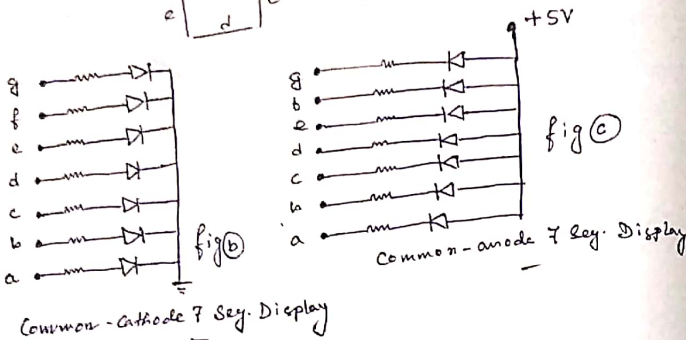 e d
+5V
g
f
e
d
c
b
a
fig (b)
Common-Cathode 7 Seg. Display
g
b
e
d
c
b
a
fig (c)
Common-anode 7 Seg. Display